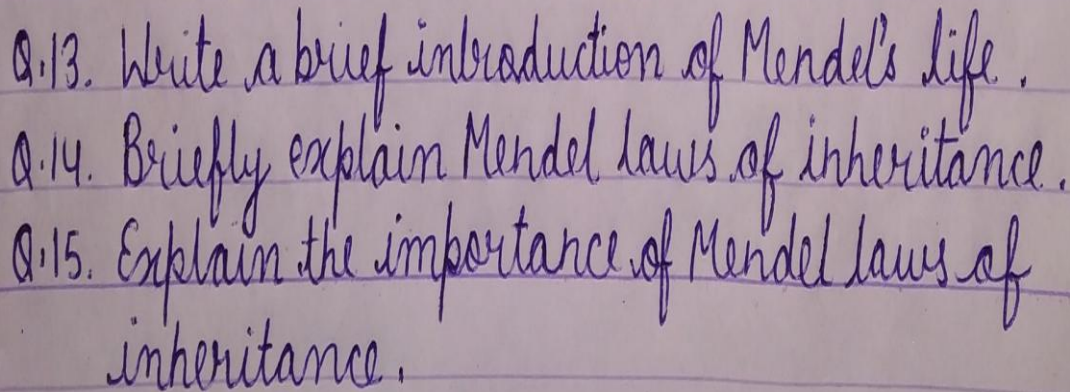 Q.13. Write a brief introduction of Mendel's life.
Q.14. Briefly explain Mendel laws of inheritance.
Q.15. Explain the importance of Mendel laws of
inheritance.